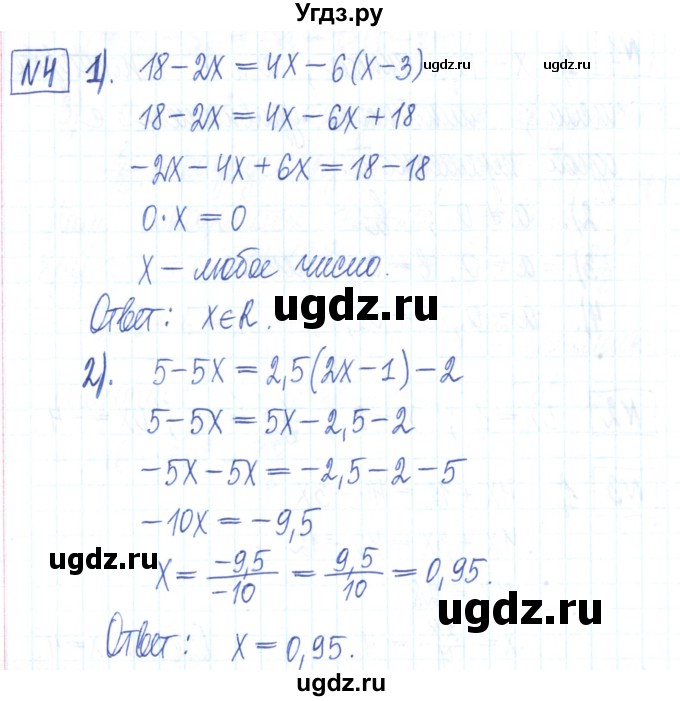 Угдз.ру
№4 1). 18 – 2x = 4x – 6(x – 3)
ugdz.ru ugdz.ru
18 – 2x = 4x – 6x + 18
– 2x – 4x + 6x = 18 – 18
0 · x = 0
x – любое число.
ugdz.ru
Ответ: x ∈ R.
2). 5 – 5x = 2,5(2x – 1) – 2
5 – 5x = 5x – 2,5 – 2
– 5x – 5x = – 2,5 – 2 – 5
– 10x = – 9,5
ugdz.ru ugdz.ru
x = –9,5/–10 = 9,5/10 = 0,95.
ugdz.ru
Ответ: x = 0,95.
ugdz.ru